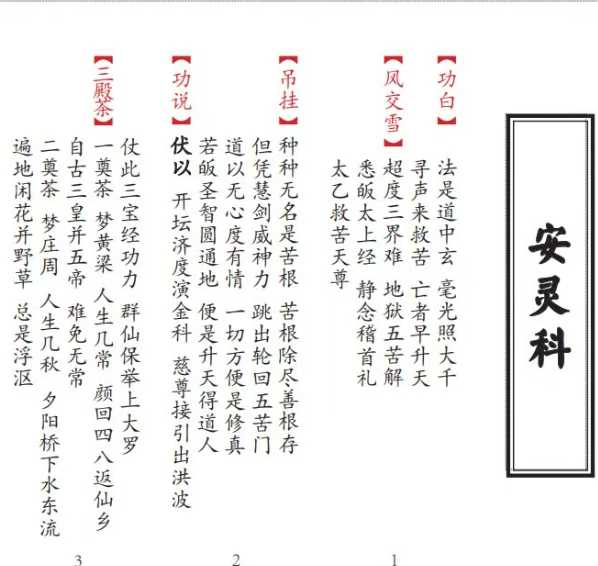 安灵科
【功白】
法是道中玄 毫光照大千
寻声来救苦 亡者早升天
【风交雪】
超度三界难 地狱五苦解
悉皈太上经 静念稽首礼
太乙救苦天尊
【吊挂】
种种无名是苦根 苦根除尽善根存
但凭慧剑威神力 跳出轮回五苦门
道以无心度有情 一切方便是修真
若皈圣智圆通地 便是升天得道人
【功说】
伏以 开坛济度演金科 慈尊接引出洪波
仗此三宝经功力 群仙保举上大罗
【三殿茶】
一奠茶 梦黄梁 人生几常 颜回四八返仙乡
自古三皇并五帝 难免无常
二奠茶 梦庄周 人生几秋 夕阳桥下水东流
遍地闲花并野草 总是浮沤
1
2
3